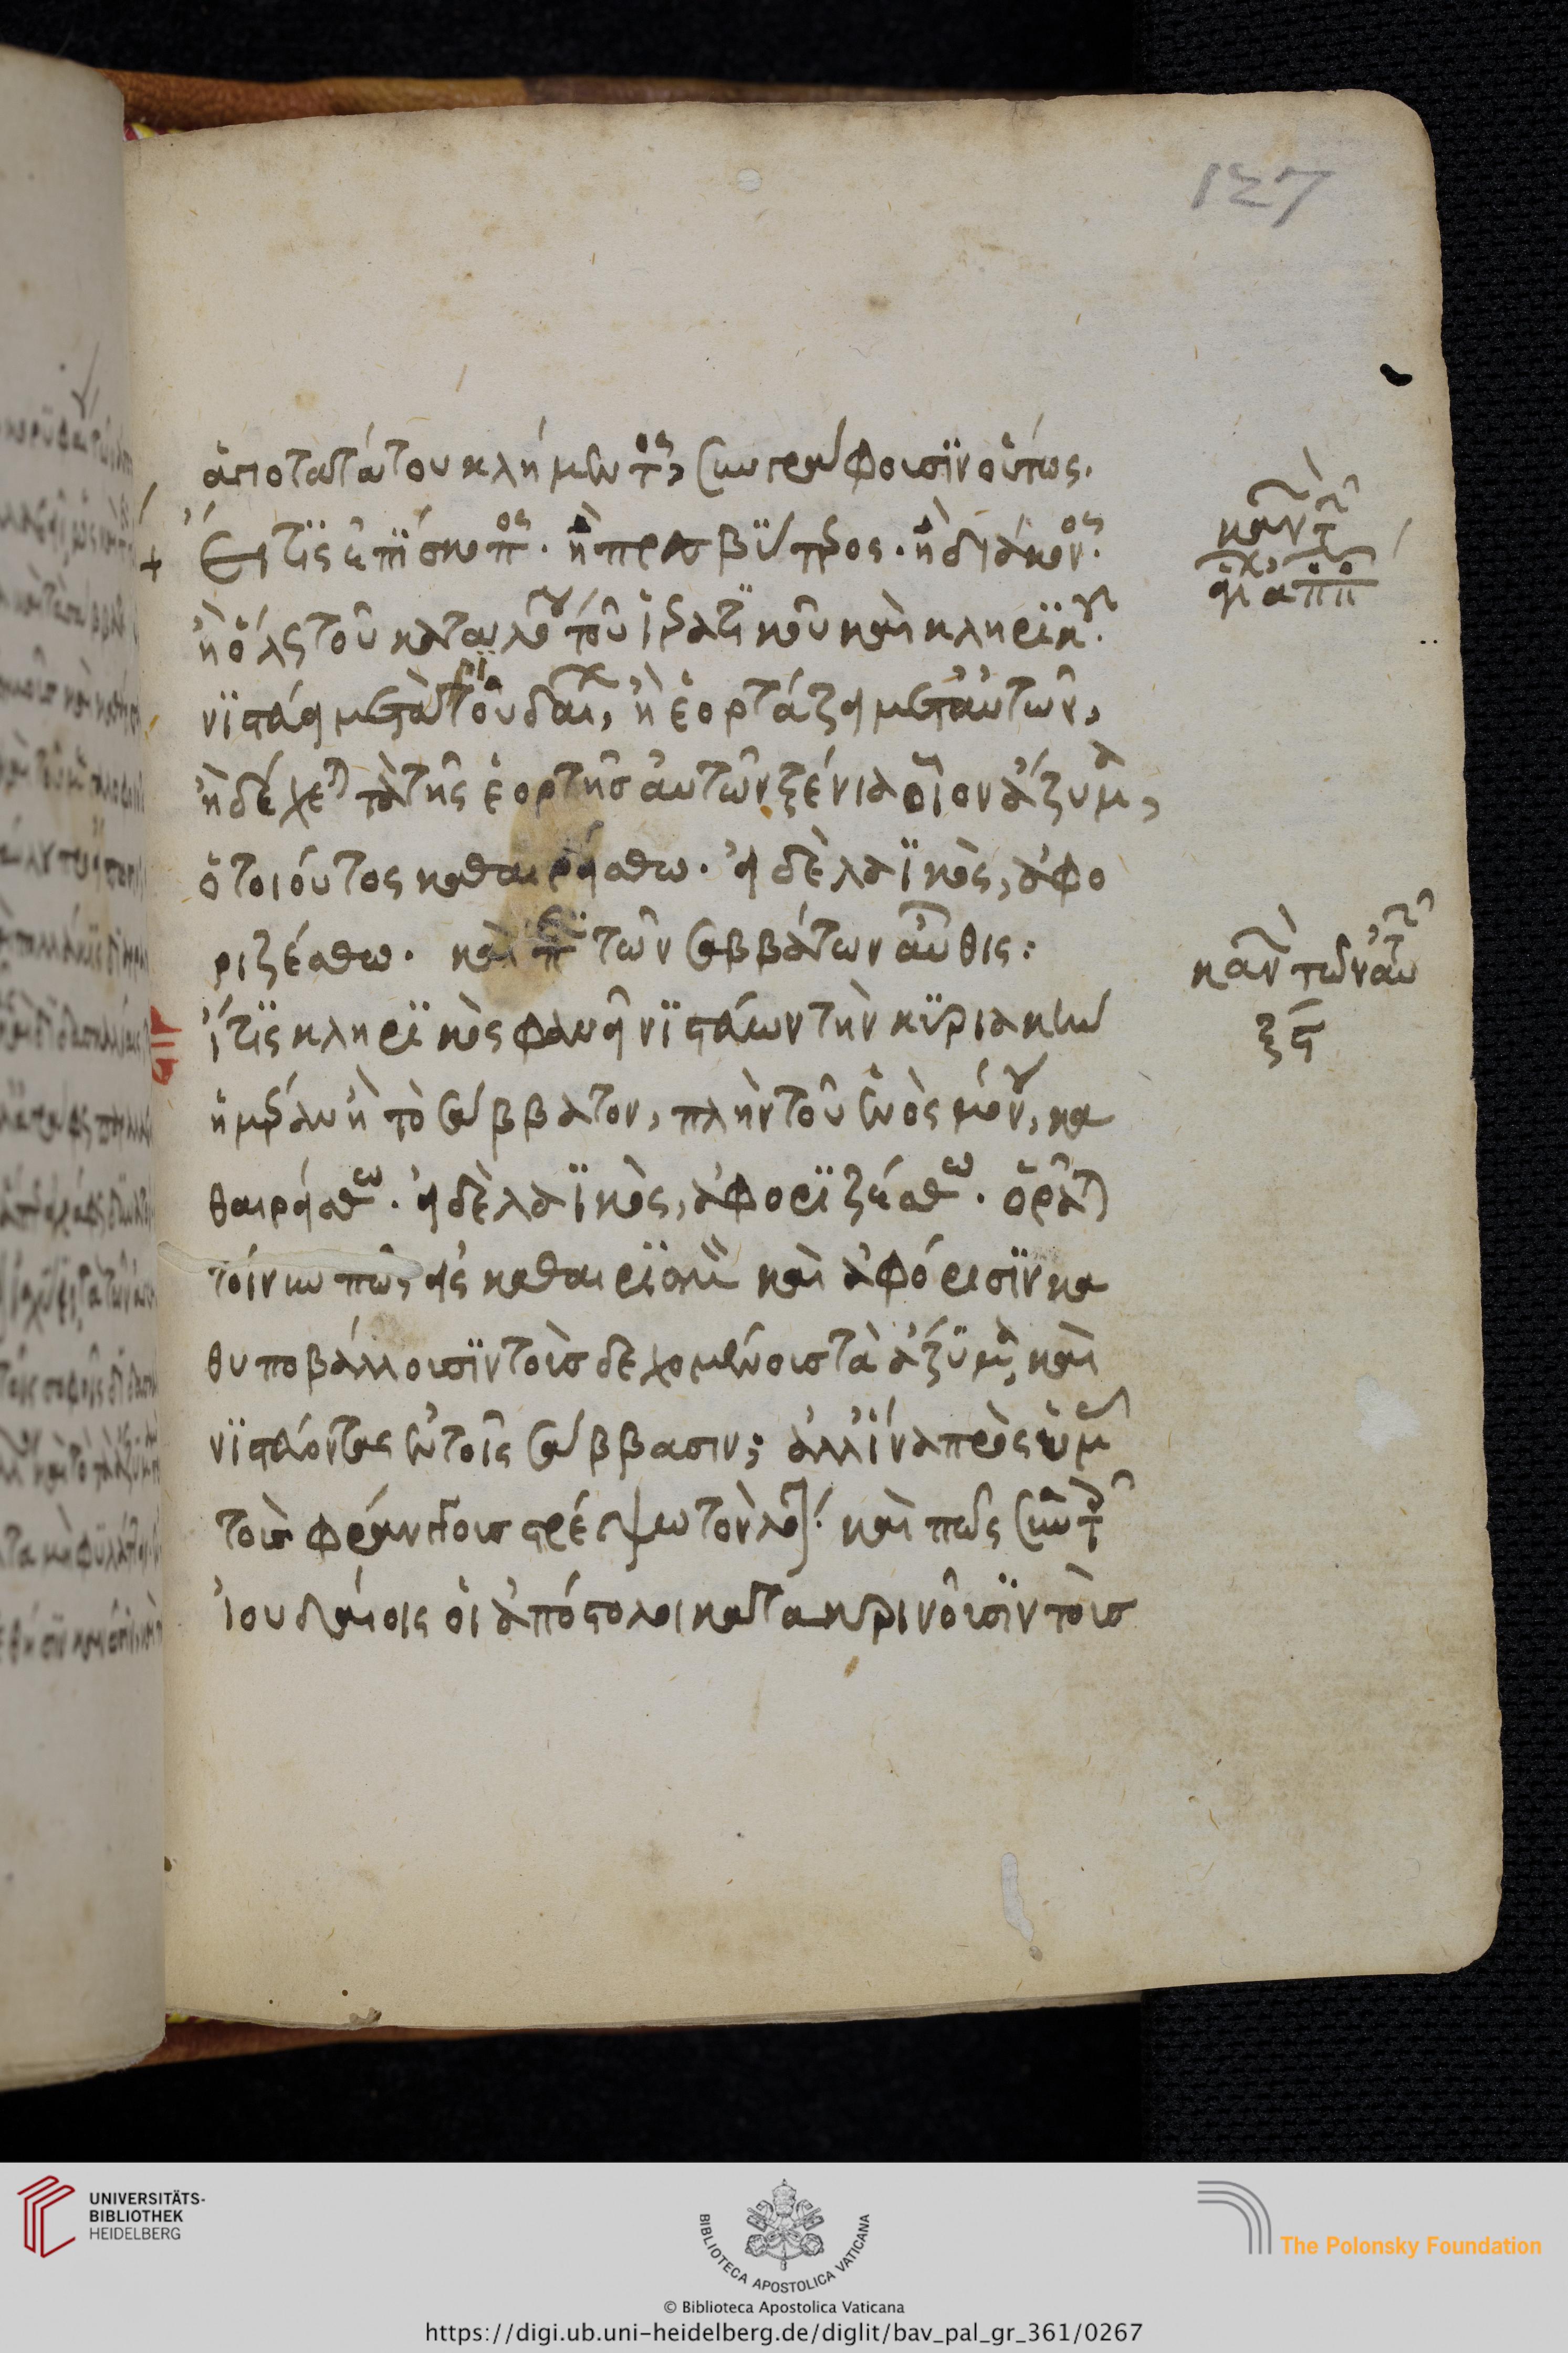 127
ἁποτατάτου κλήμεντος, συγγράφουσϊν οὕτως.
Εἴ τϊς ἐπΐσκοπος. ἢ πρεσβΰτερος. ἢ διάκονος.
ἢ ὅλως τοῦ καταλόγου τοῦ ἱερατϊκοῦ καὶ κληρϊκοῦ.
νϊστεύει μετὰ τῶν ἰουδαίων, ἢ ἑορτάζει μετ' αὐτῶν,
ἢ δέχεται τὰ τῆς ἑορτῆς αὐτῶν ξένια οἷον ἄζυμα,
ὁ τοιοῦτος καθαιρείσθω. εἰ δὲ λαϊκὸς, ἀφο
ριζέσθω. καὶ ἐπὶ τῶν σαββάτων αὖθις:
Εἴ τϊς κληρϊκὸς φανῇ νϊστεύων τὴν κϋριακὴν
ἡμέραν ἢ τὸ σάββατον, πλὴν τοῦ ἑνὸς μόνου, κα
θαιρείσθω. εἰ δὲ λαϊκὸς, ἀφορϊζέσθω. ὁρᾶται
τοίνυν πῶς εἰς καθαιρϊσιν καὶ ἀφόρισϊν κα
θυποβάλλουσϊν τοὺς δεχομένους τὰ ἄζϋμα, καὶ
νϊστεύοντας ἐν τοῖς σάββασιν; ἀλλ' ἵνα πρὸς ὑμᾶς
τοὺς φράγγους στρέψω τὸν λόγον. καὶ πῶς σὺν τοῖς
ἰουδαίοις οἱ ἀπόστολοι κατακρινοῦσϊν τοὺς
κανὼν τῶν
ἁγίων ἀπο
κανὼν τῶν αὐτῶν
ξς
UNIVERSITÄTS-
BIBLIOTHEK
HEIDELBERG
BIBLIOTECA APOSTOLICA VATICANA
The Polonsky Foundation
© Biblioteca Apostolica Vaticana
https://digi.ub.uni-heidelberg.de/diglit/bav_pal_gr_361/0267